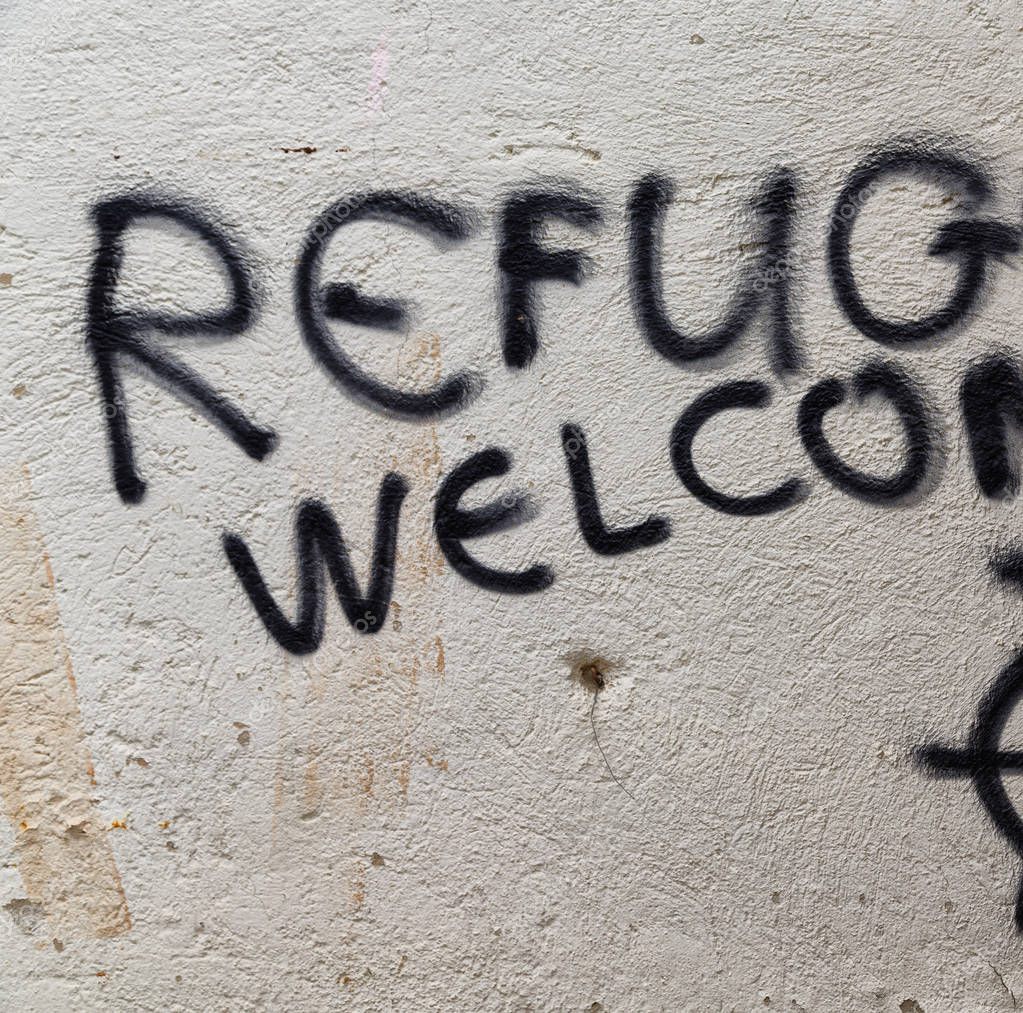 REFUG
WELCOM